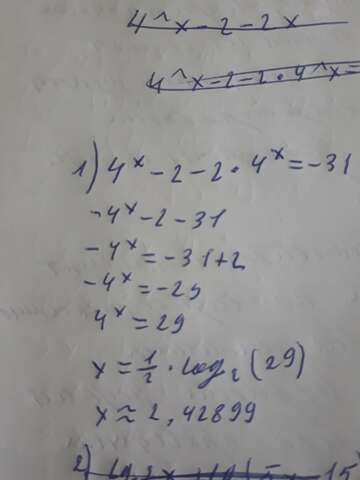 4^x-2-2x
4^x-2-2·4^x=
1) 4ˣ-2-2·4ˣ=-31
-4ˣ-2-31
-4ˣ=-31+2
-4ˣ=-29
4ˣ=29
x=½·log₂(29)
x≈2,42899
2)